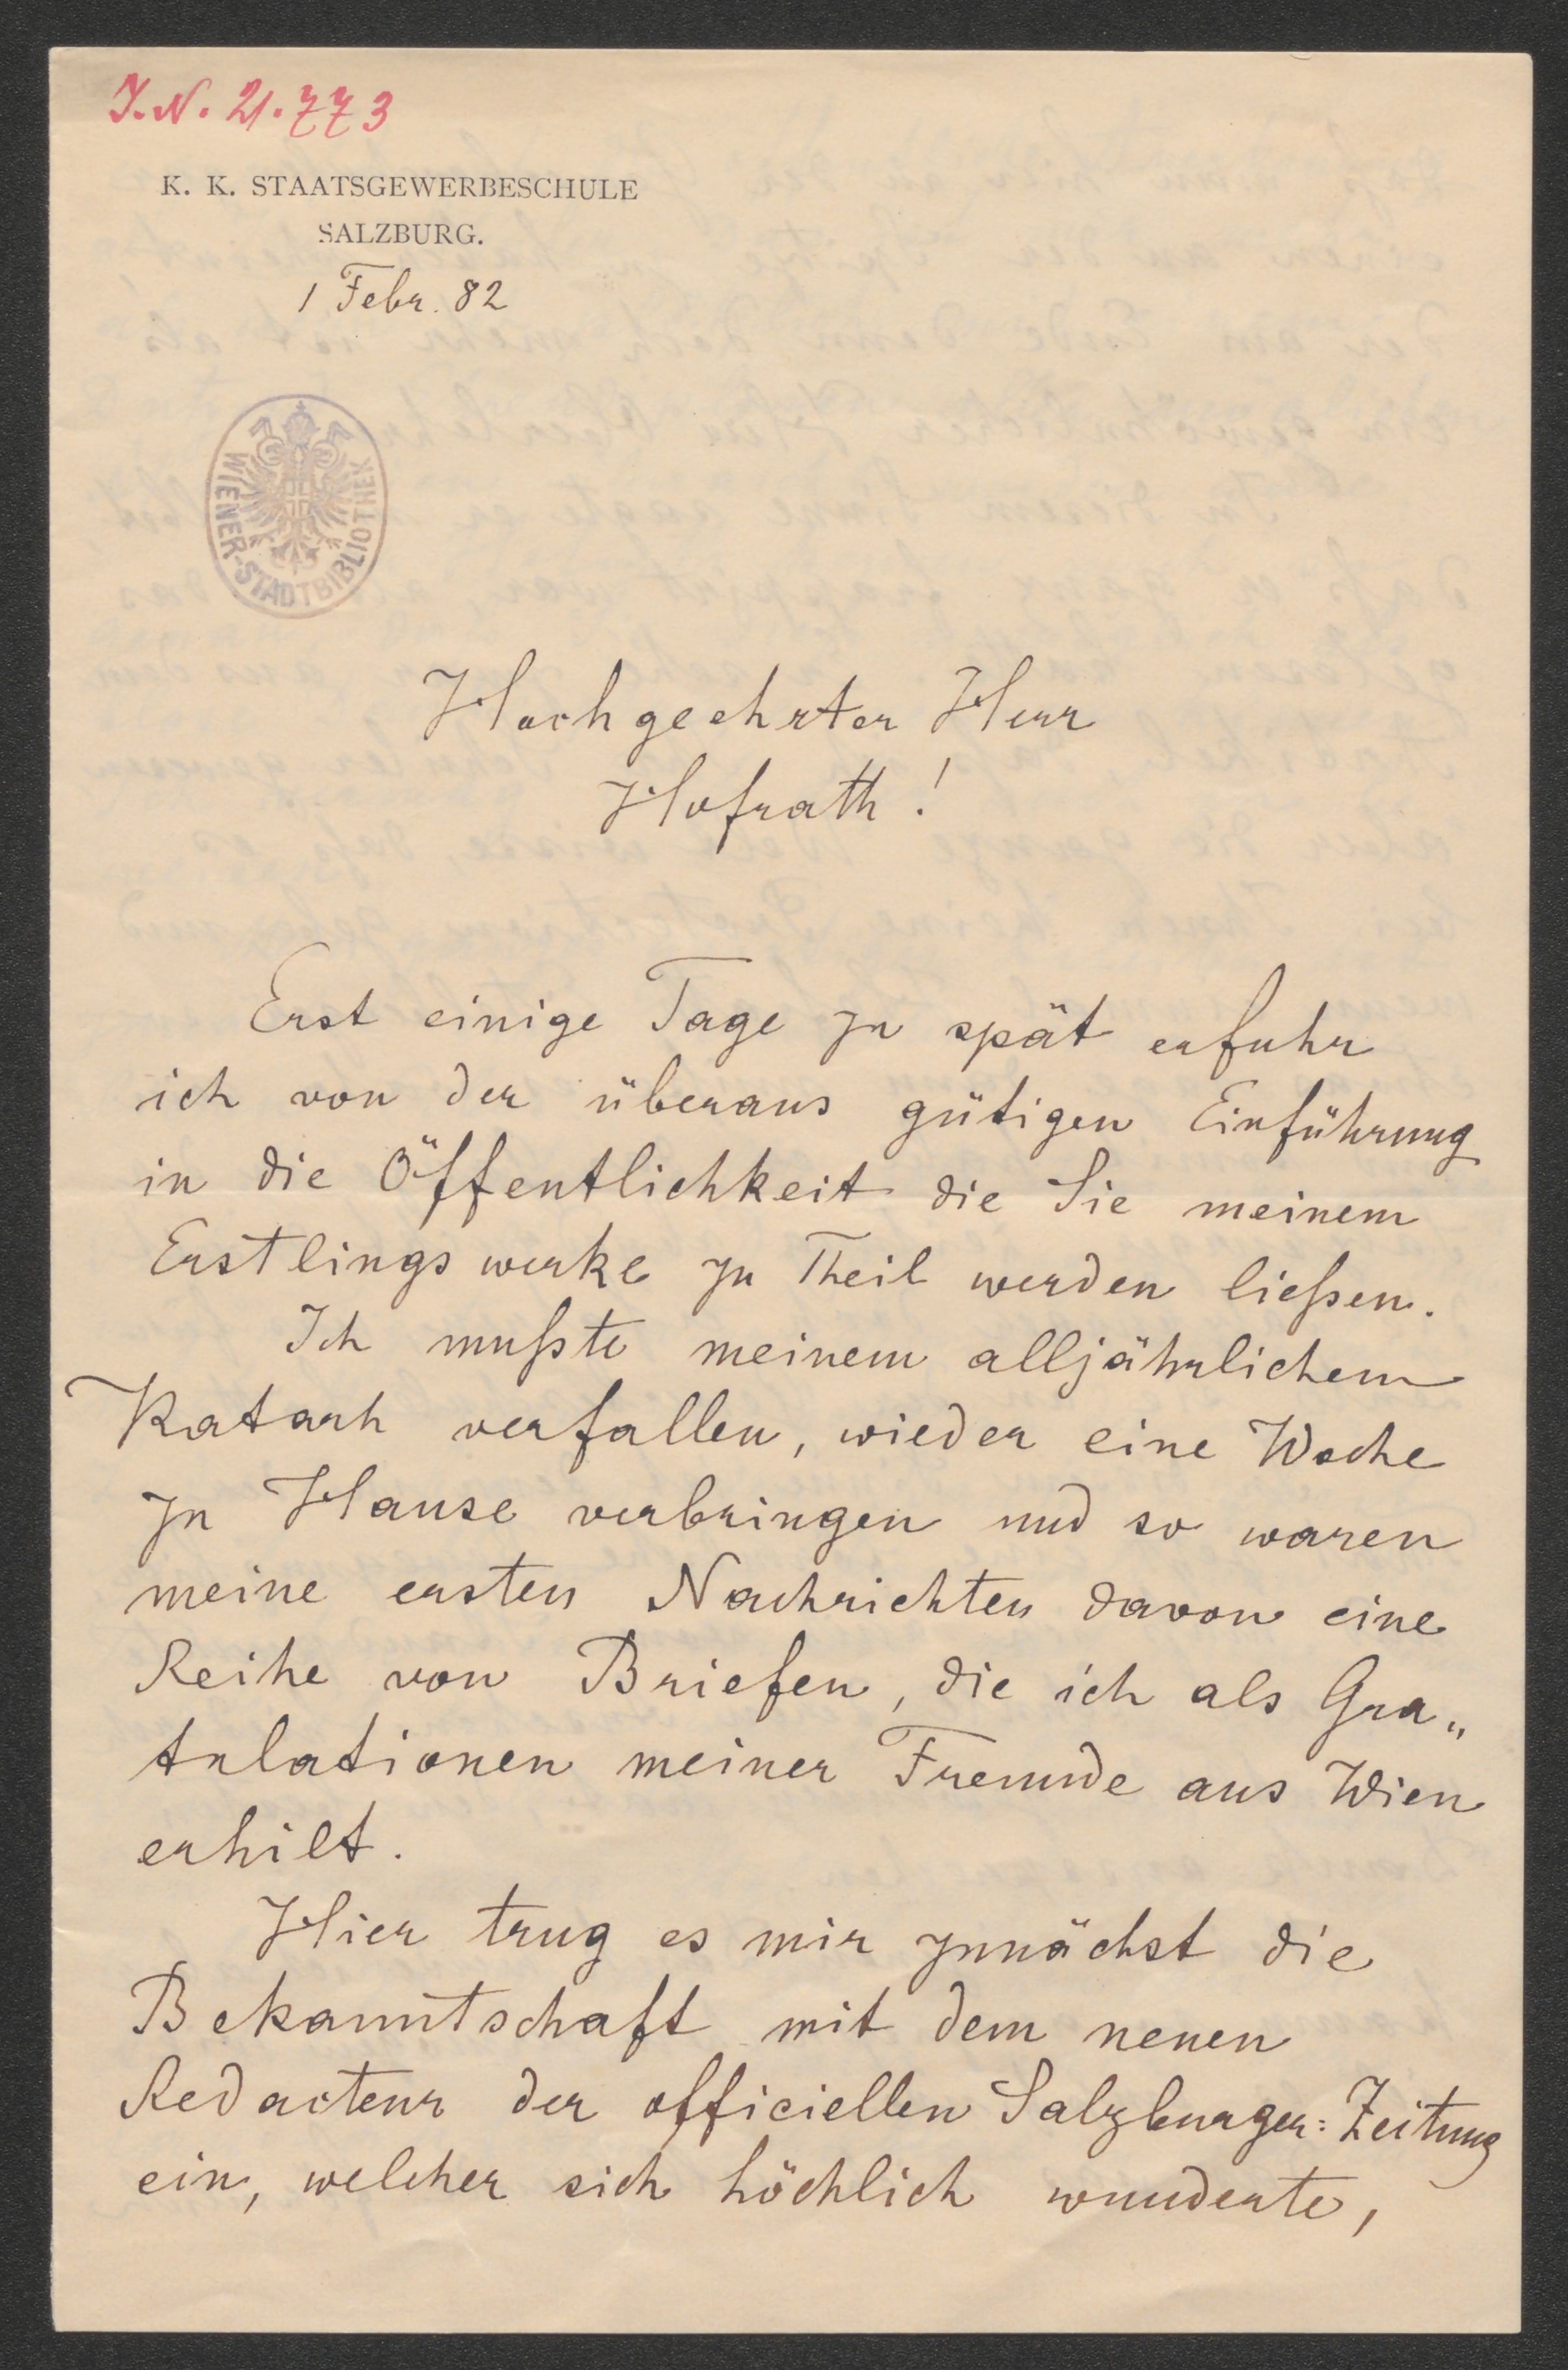 I.N. 21.773
K. K. STAATSGEWERBESCHULE
SALZBURG.
1 Febr. 82
WIENER-STADTBIBLIOTHEK
Hochgeehrter Herr
Hofrath!
Erst einige Tage zu spät erfuhr
ich von der überaus gütigen Einführung
in die Öffentlichkeit die Sie meinem
Erstlingswerke zu Theil werden ließen.
Ich mußte meinem alljährlichem
Katarh verfallen, wieder eine Woche
zu Hause verbringen und so waren
meine ersten Nachrichten davon eine
Reihe von Briefen, die ich als Gra„
tulationen meiner Freunde aus Wien
erhilt.
Hier trug es mir zunächst die
Bekanntschaft mit dem neuen
Redacteur der officiellen Salzburger=Zeitung
ein, welcher sich höchlich wunderte,